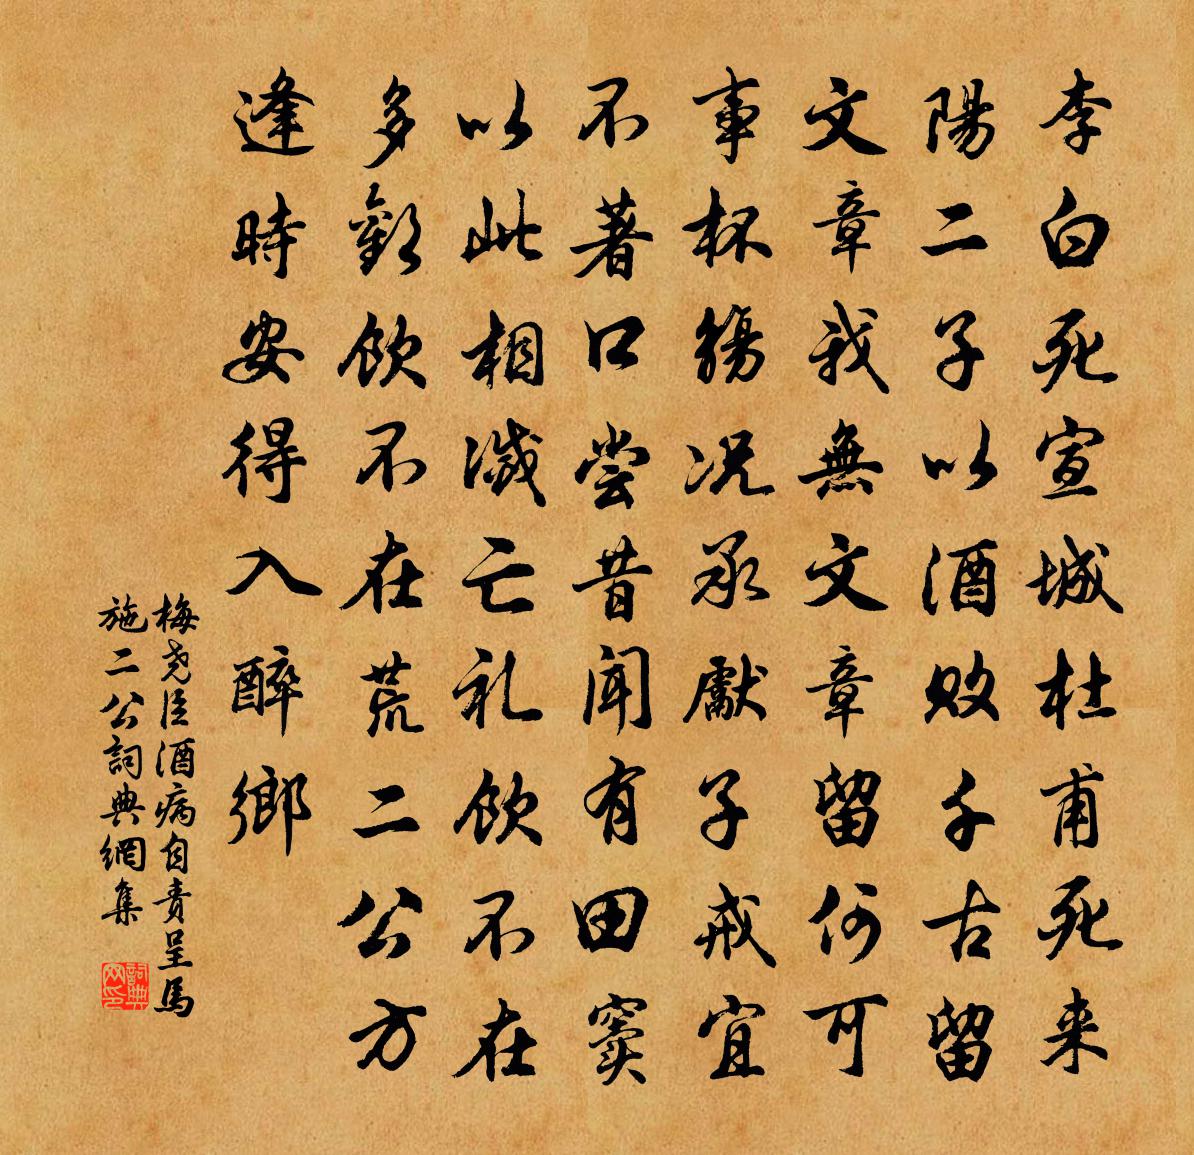 李白死宣城杜甫死来
陽二子以酒敗千古留
文章我無文章留何可
事杯觴况承獻子戒宜
不著口尝昔聞有田竇
以此相滅亡礼飲不在
多歡飲不在荒二公方
逢時安得入醉鄉
梅尧臣酒病自責呈馬
施二公詞典網集
詞典
网印